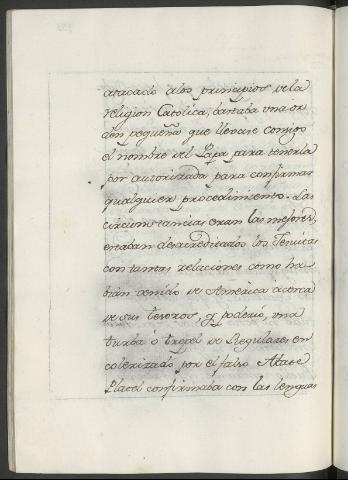 atacado á los principios de la
religion Catolica, bastaba una or
den pequeña que llevase consigo
el nombre del Papa para tenerla
por autorizada para confirmar
qualquier procedimiento. Las
circunstancias eran las mejores,
estaban desacreditados los Jesuitas
con tantas relaciones como ha
bian venido de America acerca
de sus tesoros, y poderio, una
turba ó tropel de Regulares en
colerizado por el falso
Placel confirmaba con las lenguas